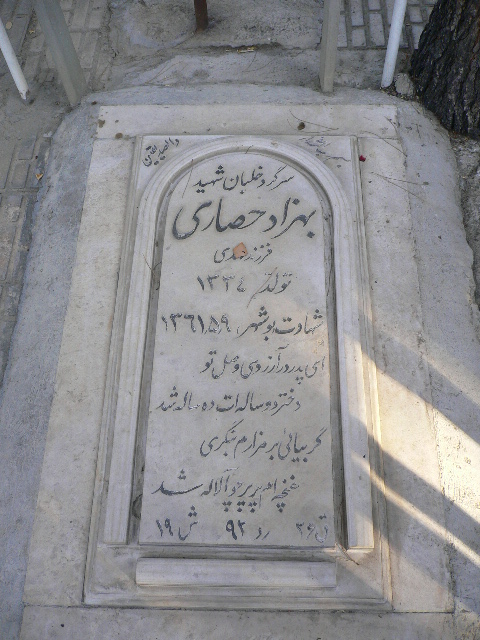 سرگرد خلبان شهید
بهزاد حصاری
فرزند
تولد ۱۳۳٤
شهادت بوشهر ۱۳۶۱٫۵۹
ای پدر در آرزوی وصل تو
دختر دو ساله ات ده ساله شد
گر بیائی بر مزارم بنگری
غنچه پرپر چو آلاله شد
ق ۲۶ رد ۹۲ ش ۱۹